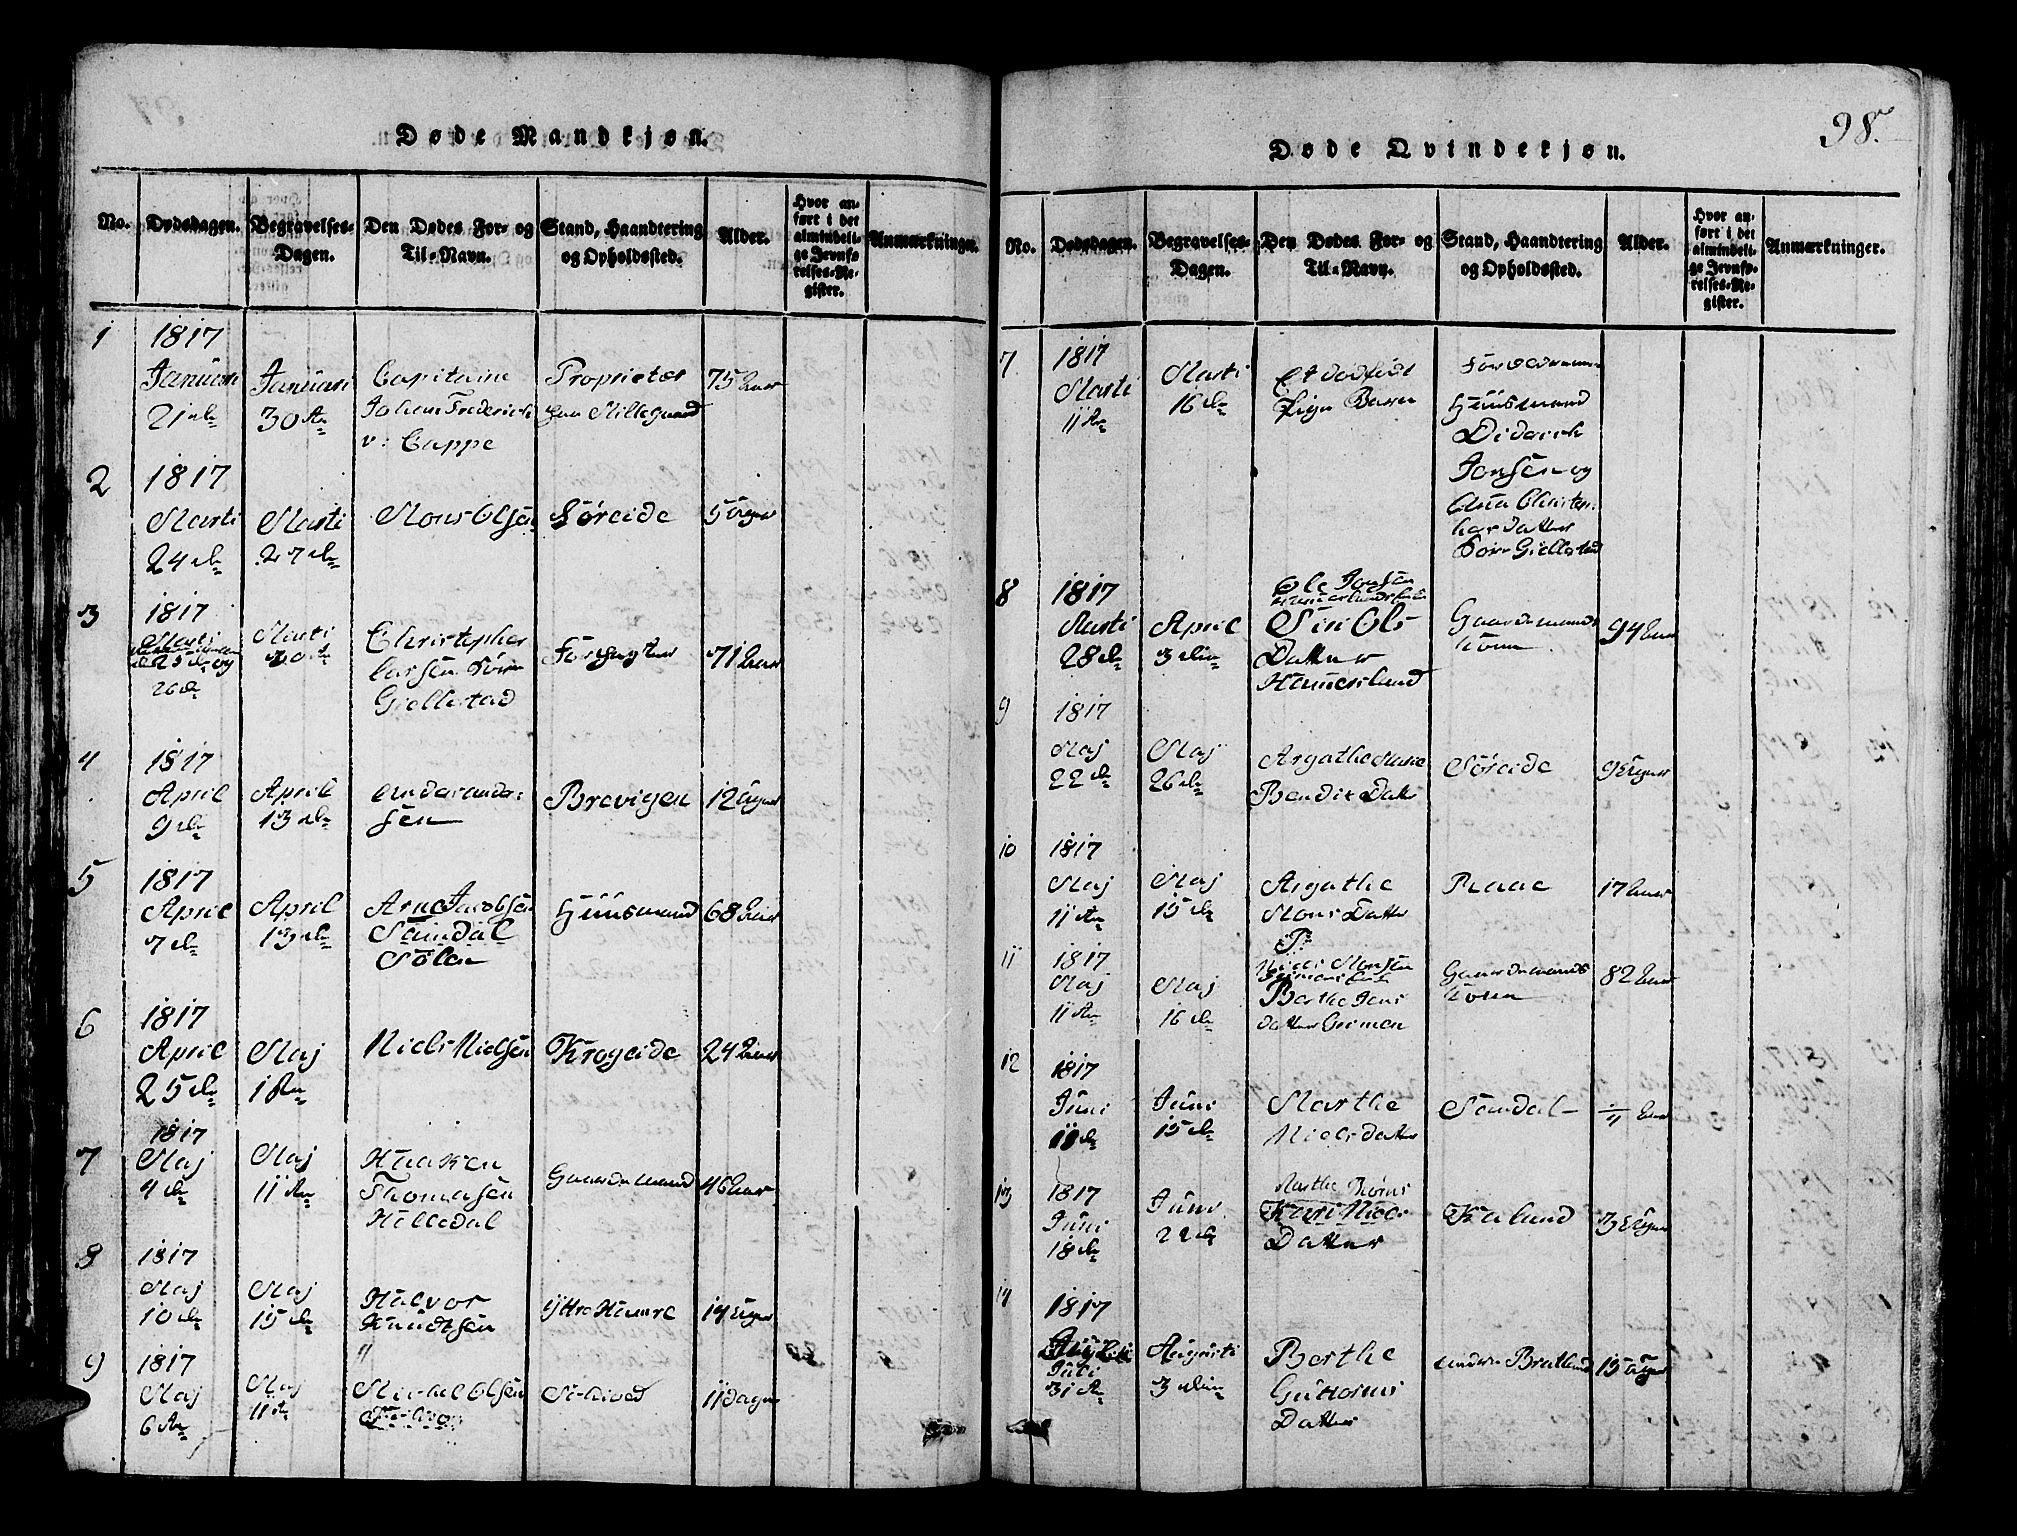 Døde Mandkjøn.
No.
Dødsdagen.
Begravelses-
Dagen.
Den Dødes For- og
Til-Navn.
Stand, Haandtering
og Opholdssted.
Alder.
Hvor an-
ført i det
almindeli-
ge Jevnfø-
relses-Re-
gister.
Anmærkninger.
1
1817
Januari
21 de
Januari
30 te
Capitaine
Johan Frederich
v: Cappe
Proprietær
paa Millegaard
75 Aar
2
1817
Marti
24 de
Marti
27 de
Mons Olsen
Søreide
5 Uger
3
1817
Marti
25 de og
26 de
Marti
30 te
Christopher
Larsen Søre
Giellestad
Forsagter
71 Aar
4
1817
April
9 de
April
13 de
Anders Anders
sen
Brevigen
12 Uger
5
1817
April
7 de
April
13 de
Arne Jacobsen
Sandal
Solen
Huusmand
68 Aar
6
1817
April
25 de
Maj
1 te
Niels Nielsen
Krogeide
24 Aar
7
1817
Maj
4 de
Maj
11 te
Haaken
Thomasen
Helledal
Gaardemand
46 Aar
8
1817
Maj
10 de
Maj
15 de
Halvor
Knudtsen
"
yttre Hamre
14 Uger
9
1817
Maj
6 te
Maj
11 te
Olsen
11 dage
98.
Døde Qvindekjøn.
No.
Dødsdagen.
Begravelses-
Dagen.
Den Dødes For- og
Til-Navn.
Stand, Haandtering
og Opholdssted.
Alder.
Hvor an-
ført i det
almindeli-
ge Jevnfø-
relses-Re-
gister.
Anmærkninger.
7
1817
Marti
11 te
Marti
16 de
Et dødfødt
Pige Barn
Huusmand
Diderich
Jonsen og
Ana Christen
har Datter
Søre Giellestad
8
1817
Marti
28 de
April
3 die
Ole Jonsen
Hammerslands kone
Siri Ols
Datter
Hamersland
Gaardemands
Kone
94 Aar
9
1817
Maj
22 de
Maj
26 de
Argathe Marie
Bendix Datt
Søreide
9 Uger
10
1817
Maj
11 te
Maj
15 de
Argathe
Mons Datter
Raae
17 Aar
11
1817
Maj
11 te
Maj
16 de
Niels Monsen
Berthe Jens
datter Grimen
Gaardemands
Kone
82 Aar
12
1817
Juni
11 de
Juni
15 de
Marthe
Nielsdatter
Sandal
Aar
13
1817
Juni
18 de
Juni
22 de
Marthe Børns
Kari Niels
Datter
Kaland
3 Uger
14
1817
Juli
31 te
Augusti
3 die
Berthe
Guttorms
Datter
undere Bratland
15 Uger